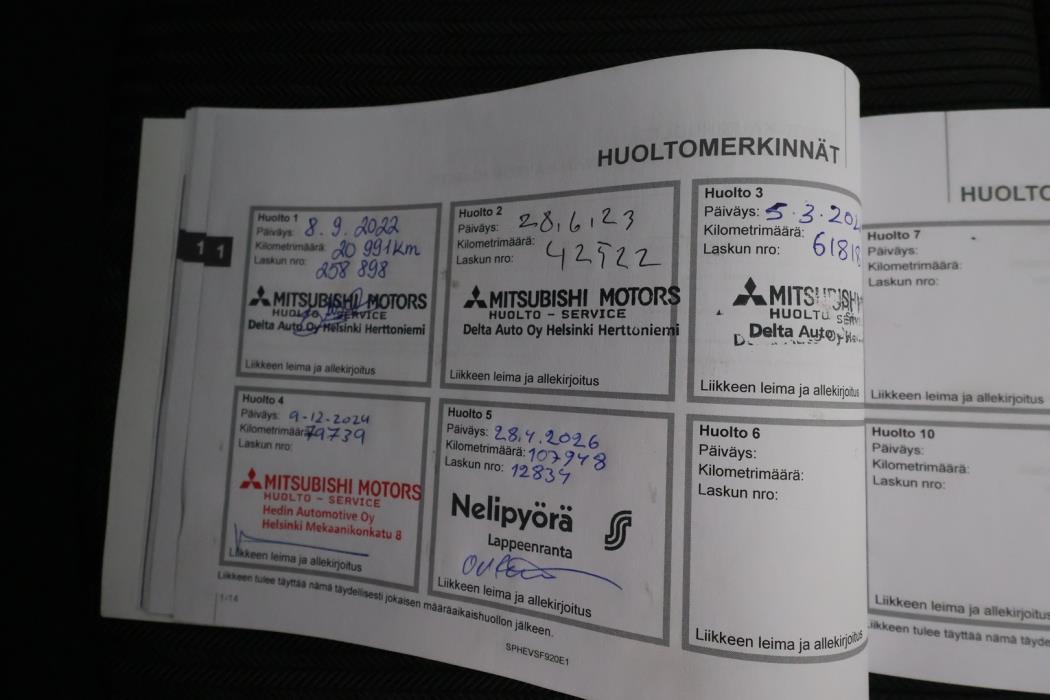 HUOLTOMERKINNÄT
1
1
Huolto 1
Päiväys: 8.9.2022
Kilometrimäärä: 20 991 km
Laskun nro:
258 898
MITSUBISHI MOTORS
HUOLTO - SERVICE
Delta Auto Oy Helsinki Herttoniemi
Liikkeen leima ja allekirjoitus
Huolto 2
Päiväys: 28,6,23
Kilometrimäärä:
Laskun nro: 42522
MITSUBISHI MOTORS
HUOLTO - SERVICE
Delta Auto Oy Helsinki Herttoniemi
Liikkeen leima ja allekirjoitus
Huolto 3
Päiväys: 5.3.202
Kilometrimäärä:
Laskun nro: 61818
MITSUBISHI
HUOLTO SERV
Delta Auto Oy He
Liikkeen leima ja allekirjoitus
Huolto 4
Päiväys: 9-12-2024
Kilometrimäärä: 79739
Laskun nro:
MITSUBISHI MOTORS
HUOLTO - SERVICE
Hedin Automotive Oy
Helsinki Mekaanikonkatu 8
Liikkeen leima ja allekirjoitus
Huolto 5
Päiväys: 28.4.2026
Kilometrimäärä: 107948
Laskun nro: 12834
Nelipyörä
Lappeenranta
Liikkeen leima ja allekirjoitus
Huolto 6
Päiväys:
Kilometrimäärä:
Laskun nro:
Liikkeen leima ja allekirjoitus
Liikkeen tulee täyttää nämä täydellisesti jokaisen määräaikaishuollon jälkeen.
1-14
SPHEVSF920E1
HUOLTO
Huolto 7
Päiväys:
Kilometrimäärä:
Laskun nro:
Liikkeen leima ja allekirjoitus
Huolto 10
Päiväys:
Kilometrimäärä:
Laskun nro:
Liikkeen leima ja allekirjoitus
iikkeen tulee täyttää nämä täyde